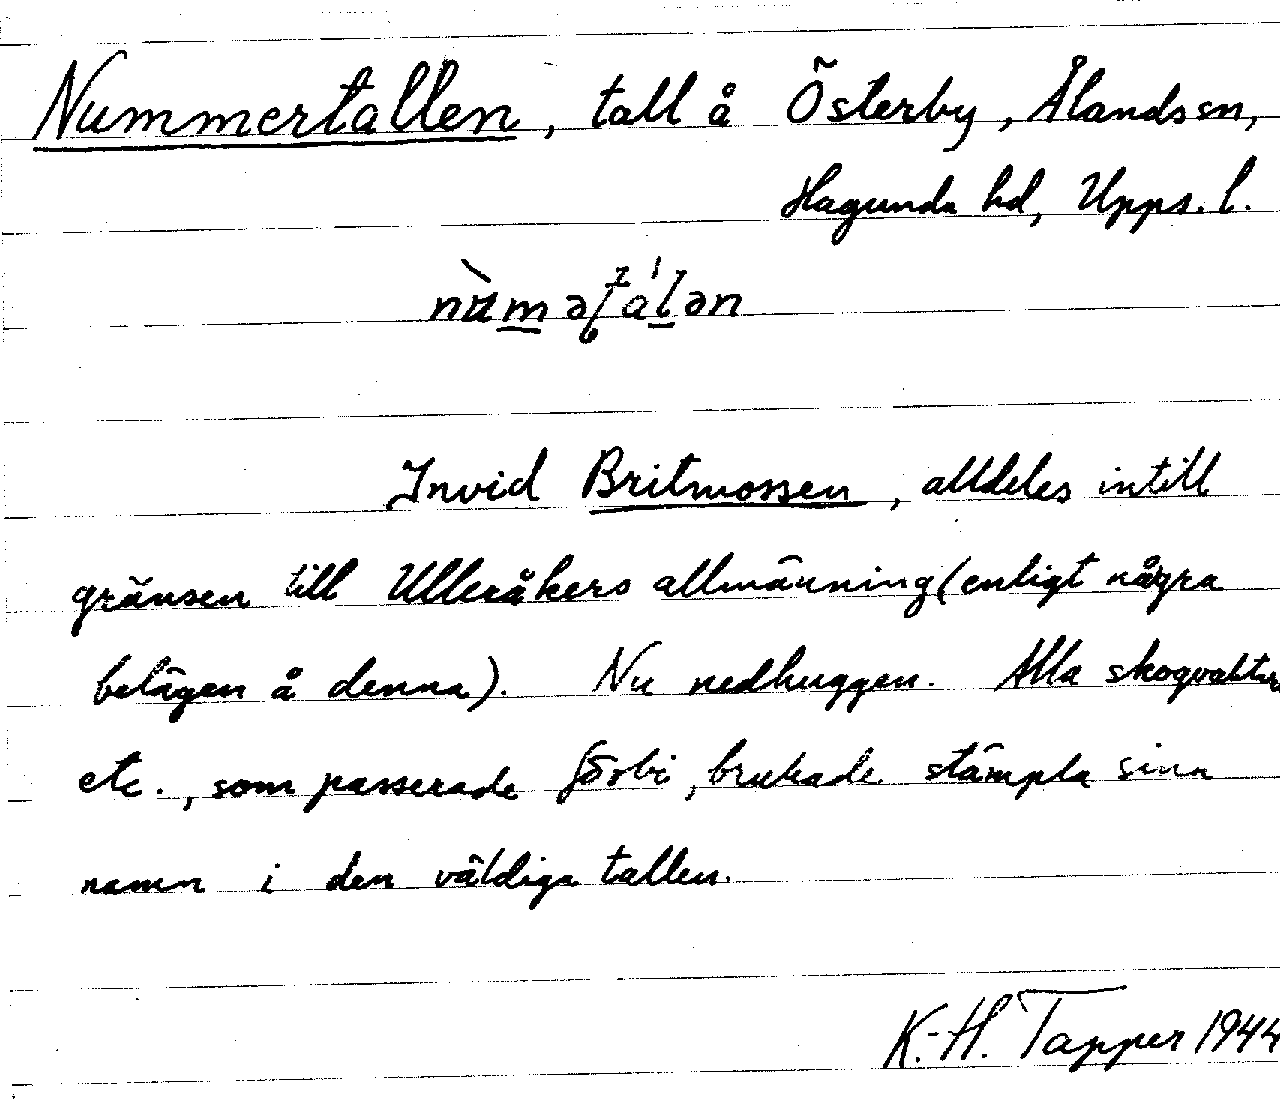 Nummertallen, tall å Österby, Ålands sn,
Hagunda hd, Upps. l.
Invid Britmossen, alldeles intill
gränsen till Ulleråkers allmänning (enligt några
belägen å denna). Nu nedhuggen. Alla skogvaktare
etc., som passerade förbi, brukade stämpla sina
namn i den väldiga tallen.
K.-H. Tapper 1944